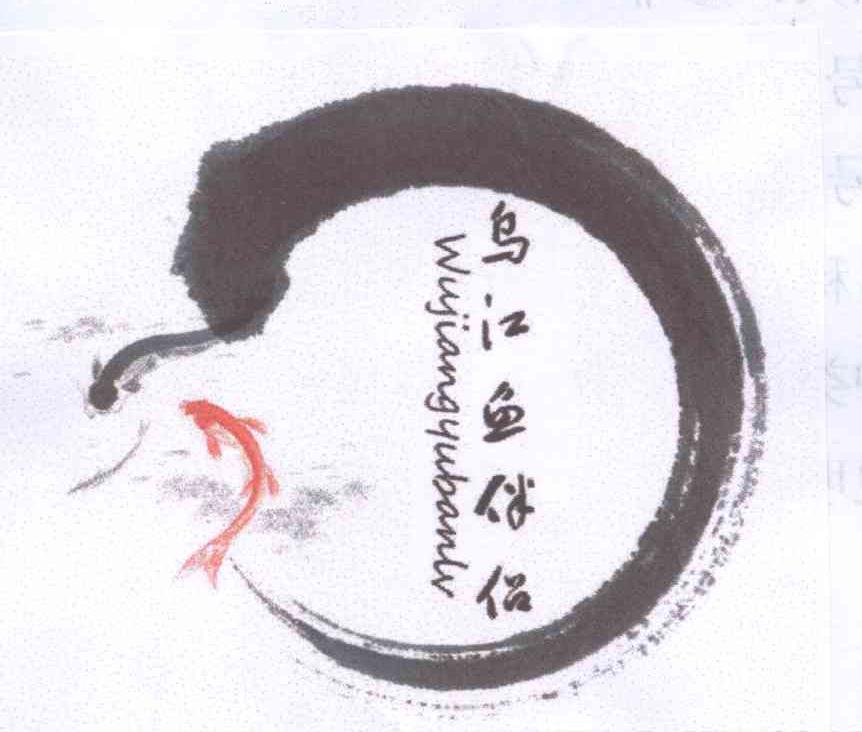 乌江鱼伴侣
Wujiangyubanlv